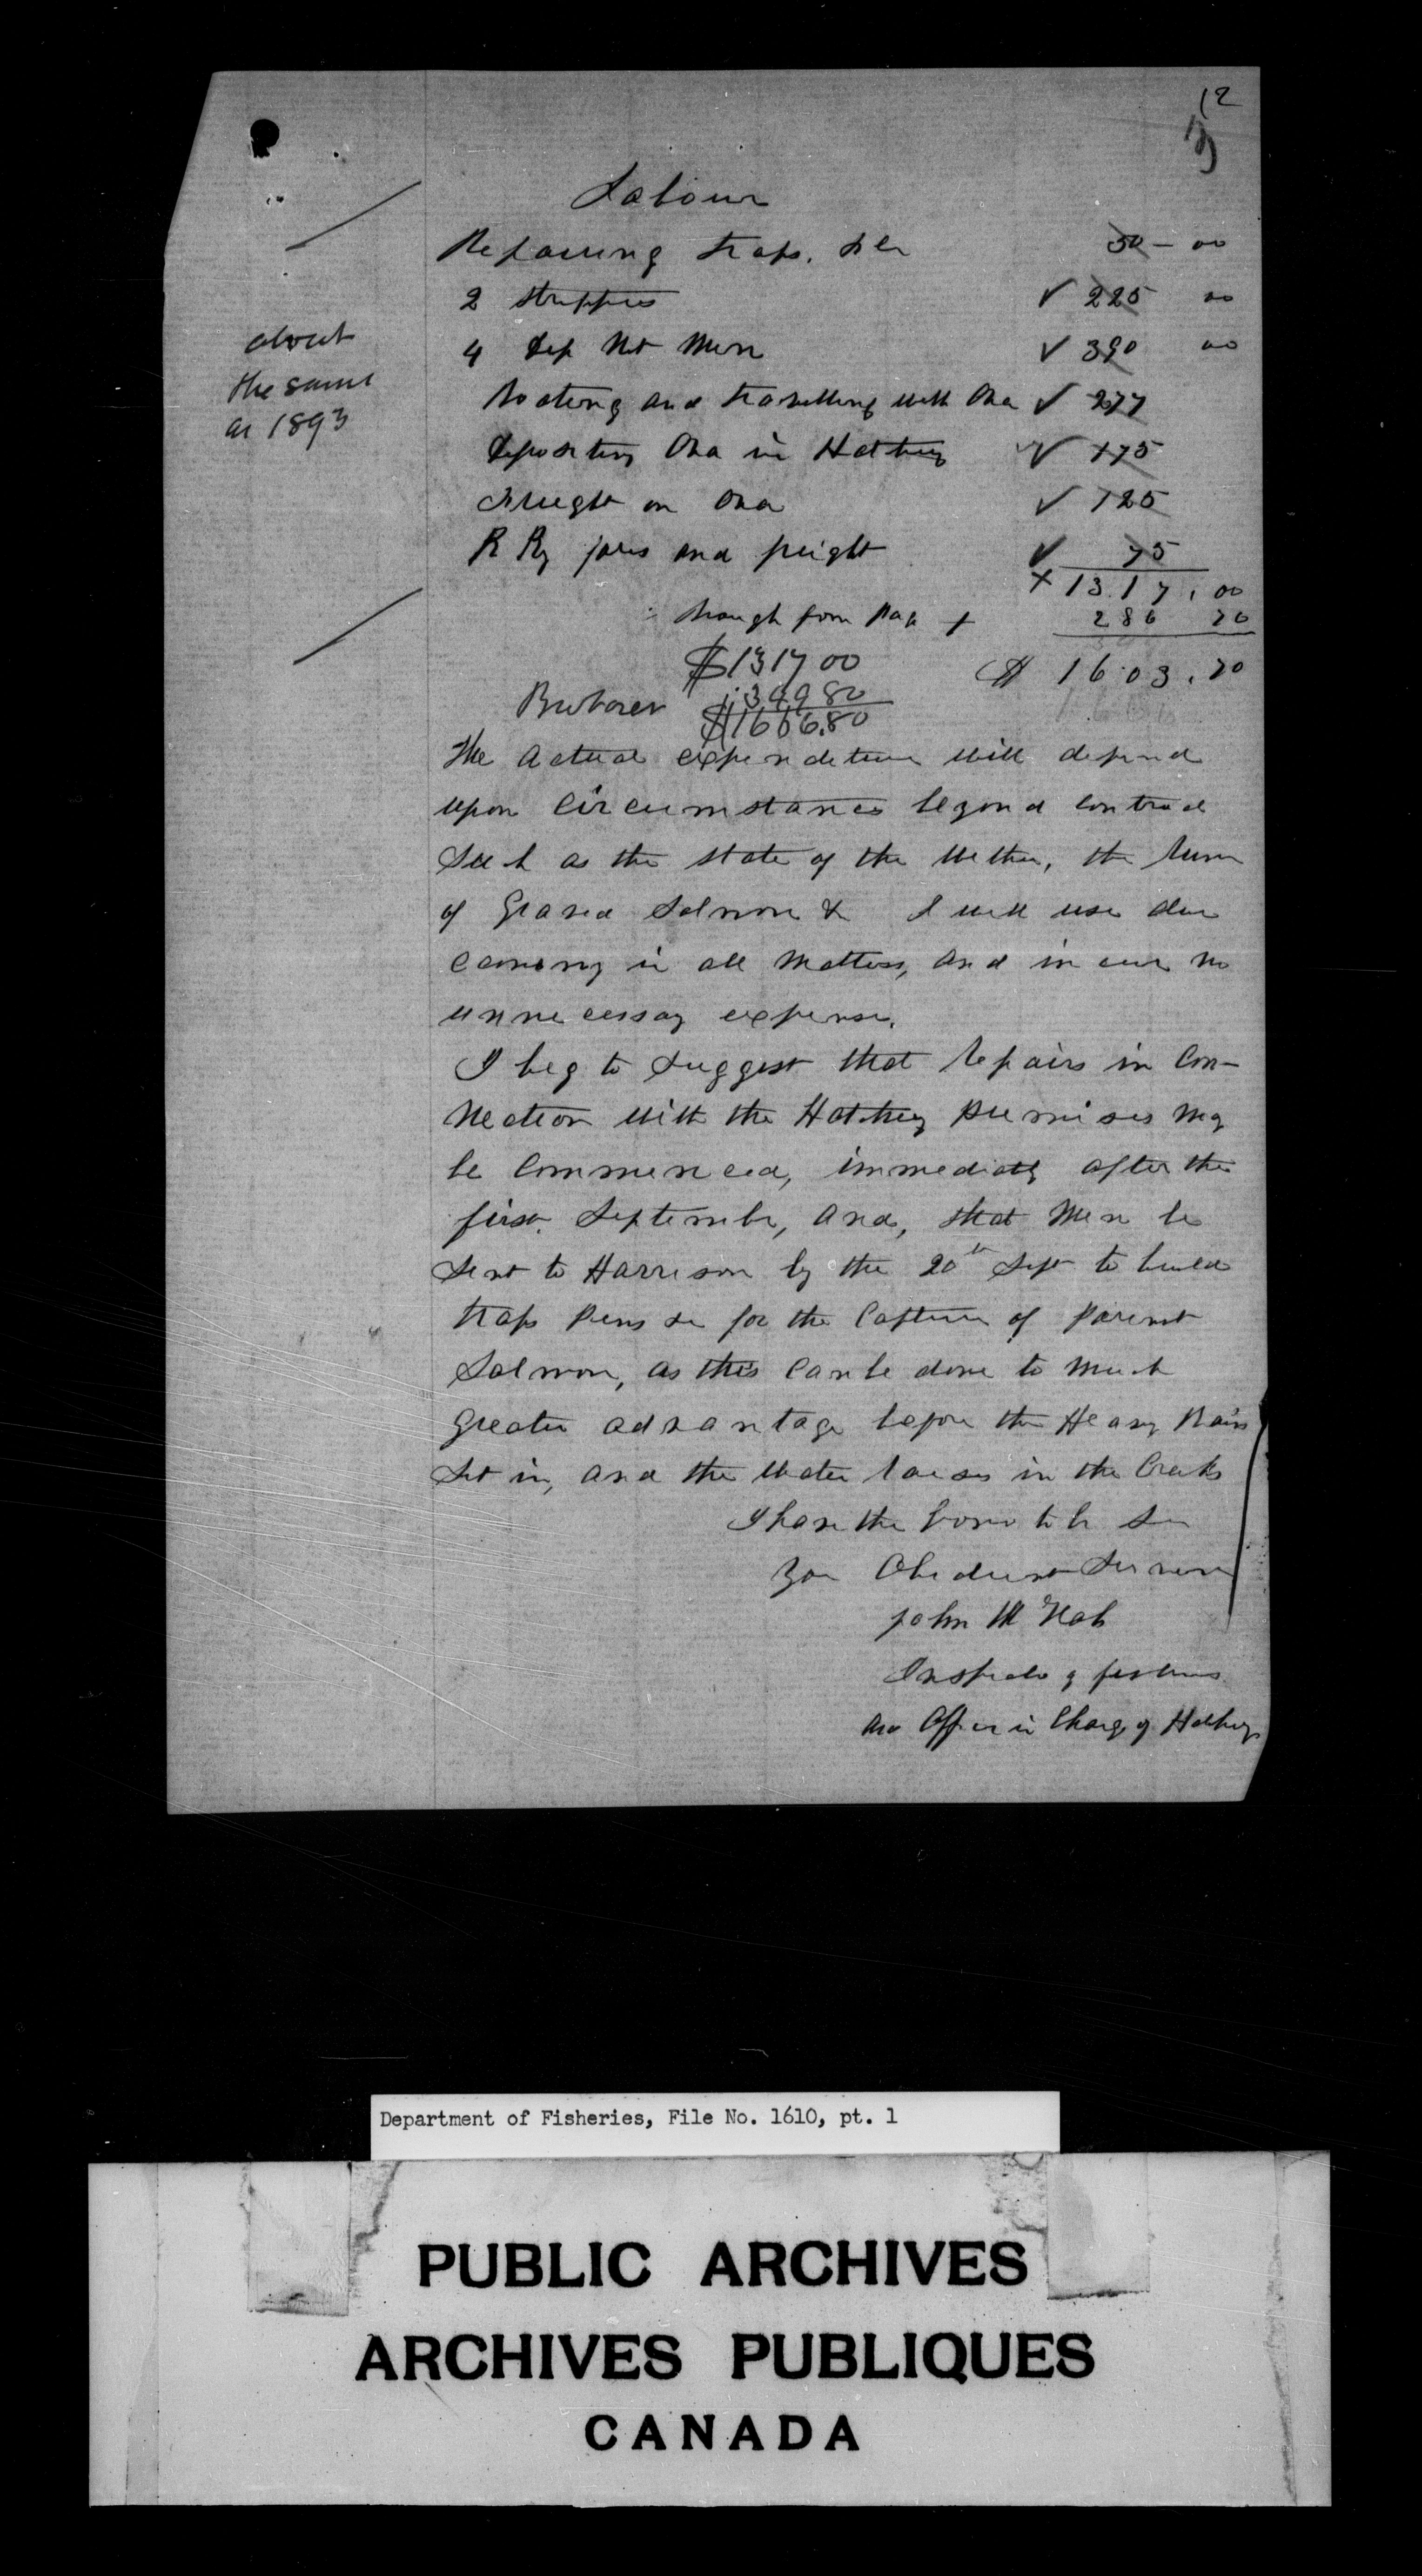 12
Labour
Repairing traps. &c 50 – 00
2 strippers ✓ 225 00
4 Dip Net Men ✓ 390 00
Boating and travelling with Ova ✓ 277
Depositing Ova in Hatchery ✓ 175
Freight on Ova ✓ 125
R Ry fares and freight ✓ 75
about
the same
as 1893
x 1317.00
Brough from Page + 286 20
$1317 00 $ 1603.20
349 80
$1666.80
The actual expenditure will depend
upon Circumstances beyond Control
Such as the state of the Wether, the Run
of Gravid Salmon & I will use due
Economy in all Matters, and incur no
unnecessay expense.
I beg to Suggest that Repairs in Con-
Nection with the Hatchery Premises May
be Commenced, immediatly after the
first. September, and, that Men be
Sent to Harrison by the 20th Sept to build
traps Pens &c for the Capture of Parent
Salmon, as this Can be done to Much
Greater advantage before the Heavy Rains
Set in, and the Water raises in the Creeks
I have the honor to be Sir
Your Obedient Servant
John McNab
Inspector of fisheries
and Officer in Charge of Hatchery
Department of Fisheries, File No. 1610, pt. 1
PUBLIC ARCHIVES
ARCHIVES PUBLIQUES
CANADA